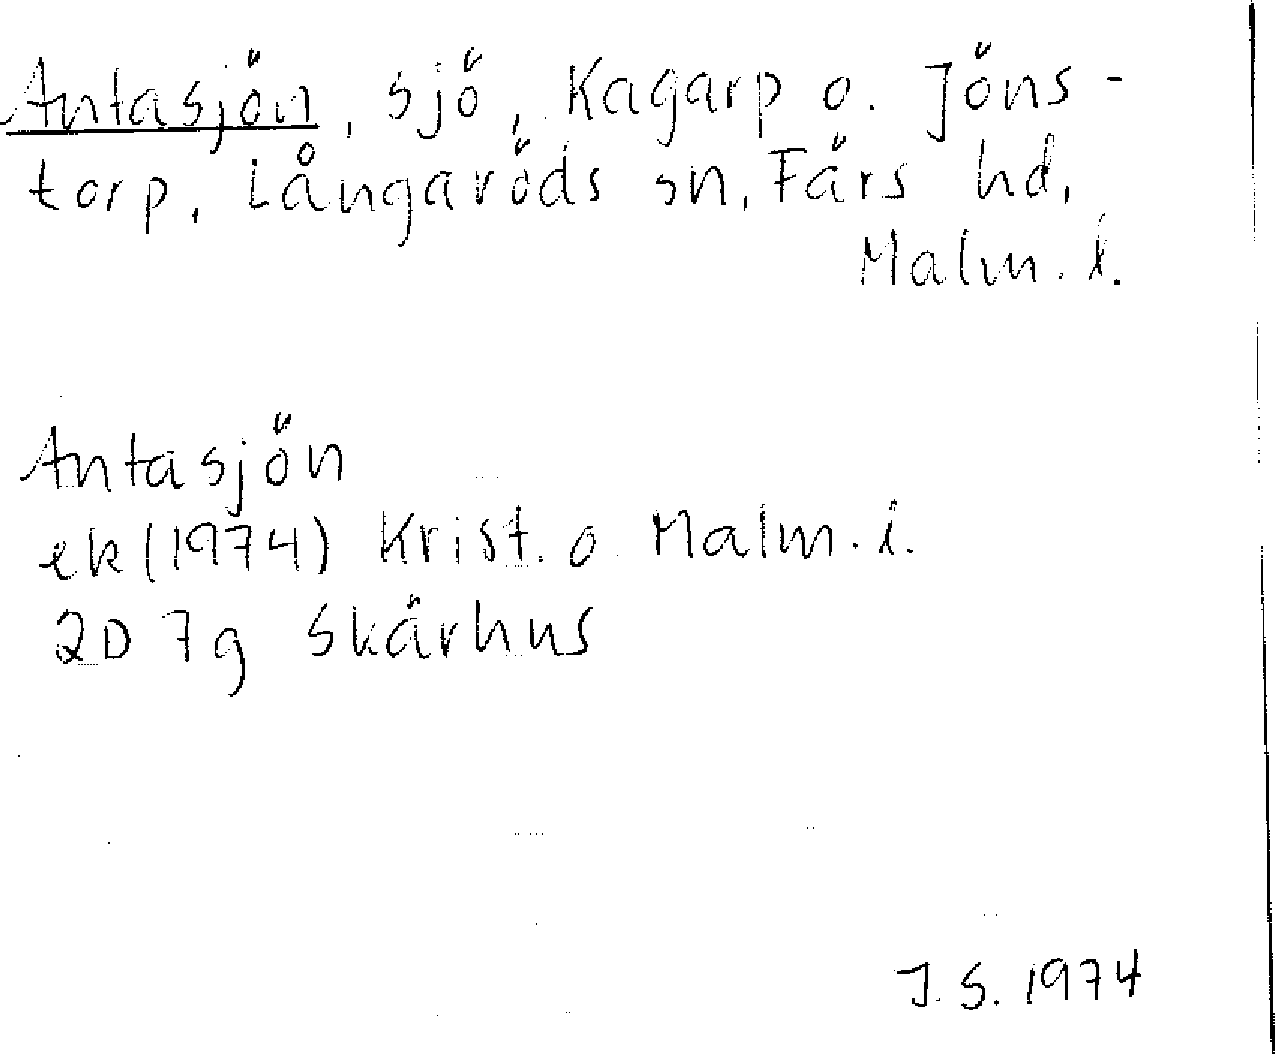 Antasjön, sjö, Kagarp o. Jöns-
torp, Långaröds sn, Färs hd,
Malm. l.
Antasjön
ek (1974) Krist. o Malm. l.
2D 7g Skärhus
J. S. 1974